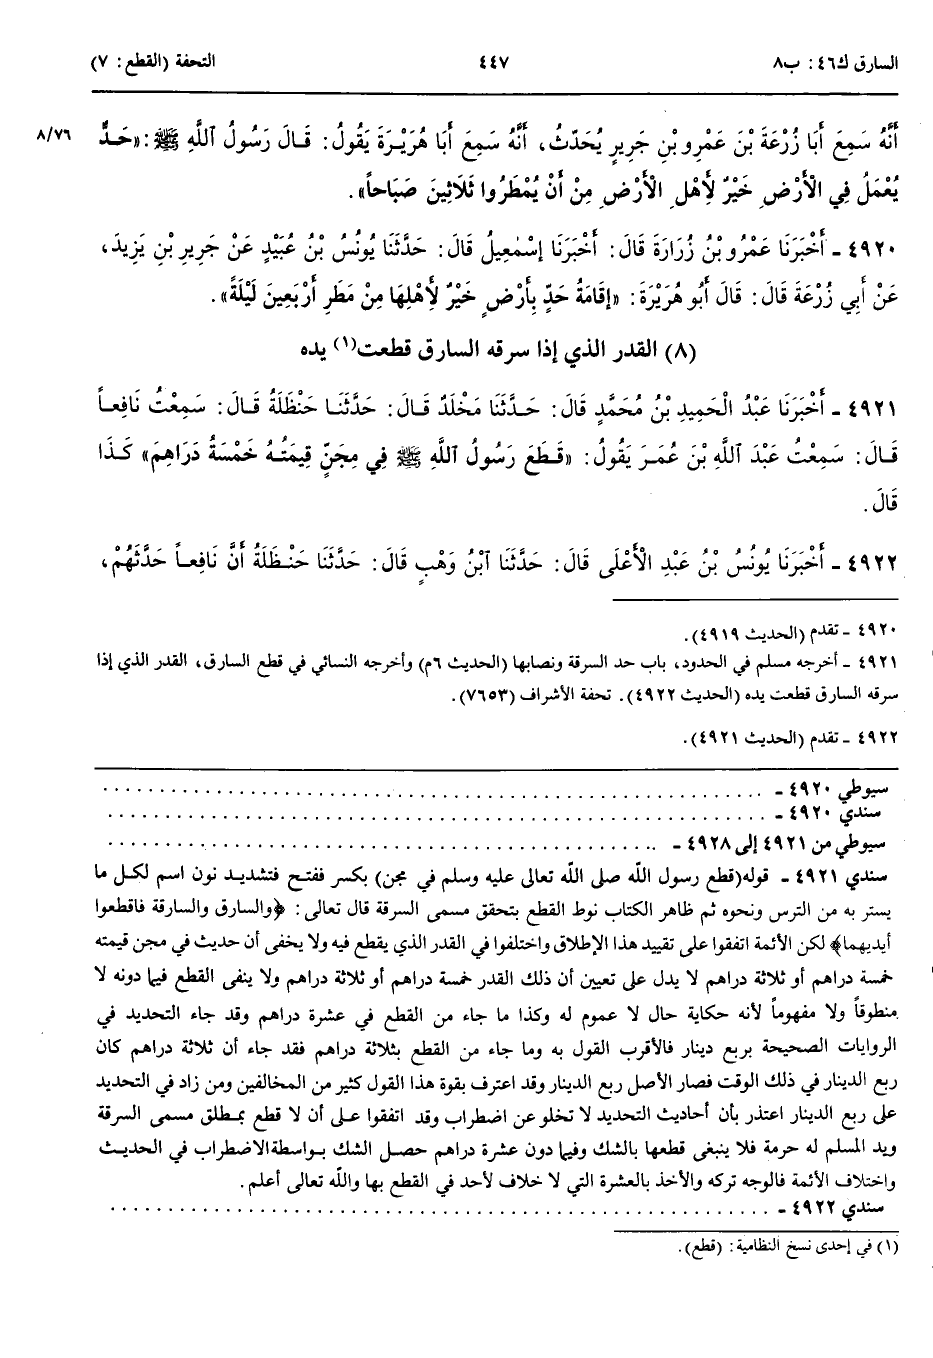 السارق ك٤٦: ب٨ ٤٤٧ التحفة (القطع: ٧)
أَنَّهُ سَمِعَ أَبَا زُرْعَةَ بْنَ عَمْرِو بْنِ جَرِيرٍ يُحَدِّثُ، أَنَّهُ سَمِعَ أَبَا هُرَيْرَةَ يَقُولُ: قَالَ رَسُولُ اللَّهِ ﷺ: «حَدٌّ ٨/٧٦
يُعْمَلُ فِي الْأَرْضِ خَيْرٌ لِأَهْلِ الْأَرْضِ مِنْ أَنْ يُمْطَرُوا ثَلَاثِينَ صَبَاحاً».
٤٩٢٠ ـ أَخْبَرَنَا عَمْرُو بْنُ زُرَارَةَ قَالَ: أَخْبَرَنَا إِسْمٰعِيلُ قَالَ: حَدَّثَنَا يُونُسُ بْنُ عُبَيْدٍ عَنْ جَرِيرِ بْنِ يَزِيدَ،
عَنْ أَبِي زُرْعَةَ قَالَ: قَالَ أَبُو هُرَيْرَةَ: «إِقَامَةُ حَدٍّ بِأَرْضٍ خَيْرٌ لِأَهْلِهَا مِنْ مَطَرِ أَرْبَعِينَ لَيْلَةً».
(٨) القدر الذي إذا سرقه السارق قطعت(١) يده
٤٩٢١ ـ أَخْبَرَنَا عَبْدُ الْحَمِيدِ بْنُ مُحَمَّدٍ قَالَ: حَدَّثَنَا مَخْلَدٌ قَالَ: حَدَّثَنَا حَنْظَلَةُ قَالَ: سَمِعْتُ نَافِعاً
قَالَ: سَمِعْتُ عَبْدَ اللَّهِ بْنَ عُمَرَ يَقُولُ: «قَطَعَ رَسُولُ اللَّهِ ﷺ فِي مِجَنٍّ قِيمَتُهُ خَمْسَةُ دَرَاهِمَ» كَذَا
قَالَ.
٤٩٢٢ ـ أَخْبَرَنَا يُونُسُ بْنُ عَبْدِ الْأَعْلَى قَالَ: حَدَّثَنَا ابْنُ وَهْبٍ قَالَ: حَدَّثَنَا حَنْظَلَةُ أَنَّ نَافِعاً حَدَّثَهُمْ،
٤٩٢٠ ـ تقدم (الحديث ٤٩١٩).
٤٩٢١ ـ أخرجه مسلم في الحدود، باب حد السرقة ونصابها (الحديث ٦م) وأخرجه النسائي في قطع السارق، القدر الذي إذا
سرقه السارق قطعت يده (الحديث ٤٩٢٢). تحفة الأشراف (٧٦٥٣).
٤٩٢٢ ـ تقدم (الحديث ٤٩٢١).
سيوطي ٤٩٢٠ ـ ..........
سندي ٤٩٢٠ ـ ..........
سيوطي من ٤٩٢١ إلى ٤٩٢٨ ـ ..........
سندي ٤٩٢١ ـ قوله(قطع رسول الله صلى الله تعالى عليه وسلم في مجن) بكسر ففتح فتشديد نون اسم لكل ما
يستر به من الترس ونحوه ثم ظاهر الكتاب نوط القطع بتحقق مسمى السرقة قال تعالى: ﴿والسارق والسارقة فاقطعوا
أيديهما﴾ لكن الأئمة اتفقوا على تقييد هذا الإطلاق واختلفوا في القدر الذي يقطع فيه ولا يخفى أن حديث في مجن قيمته
خمسة دراهم أو ثلاثة دراهم لا يدل على تعيين أن ذلك القدر خمسة دراهم أو ثلاثة دراهم ولا ينفى القطع فيما دونه لا
منطوقاً ولا مفهوماً لأنه حكاية حال لا عموم له وكذا ما جاء من القطع في عشرة دراهم وقد جاء التحديد في
الروايات الصحيحة بربع دينار فالأقرب القول به وما جاء من القطع بثلاثة دراهم فقد جاء أن ثلاثة دراهم كان
ربع الدينار في ذلك الوقت فصار الأصل ربع الدينار وقد اعترف بقوة هذا القول كثير من المخالفين ومن زاد في التحديد
على ربع الدينار اعتذر بأن أحاديث التحديد لا تخلو عن اضطراب وقد اتفقوا على أن لا قطع بمطلق مسمى السرقة
ويد المسلم له حرمة فلا ينبغى قطعها بالشك وفيما دون عشرة دراهم حصل الشك بواسطة الاضطراب في الحديث
واختلاف الأئمة فالوجه تركه والأخذ بالعشرة التي لا خلاف لأحد في القطع بها والله تعالى أعلم.
سندي ٤٩٢٢ ـ ..........
(١) في إحدى نسخ النظامية: (قطع).